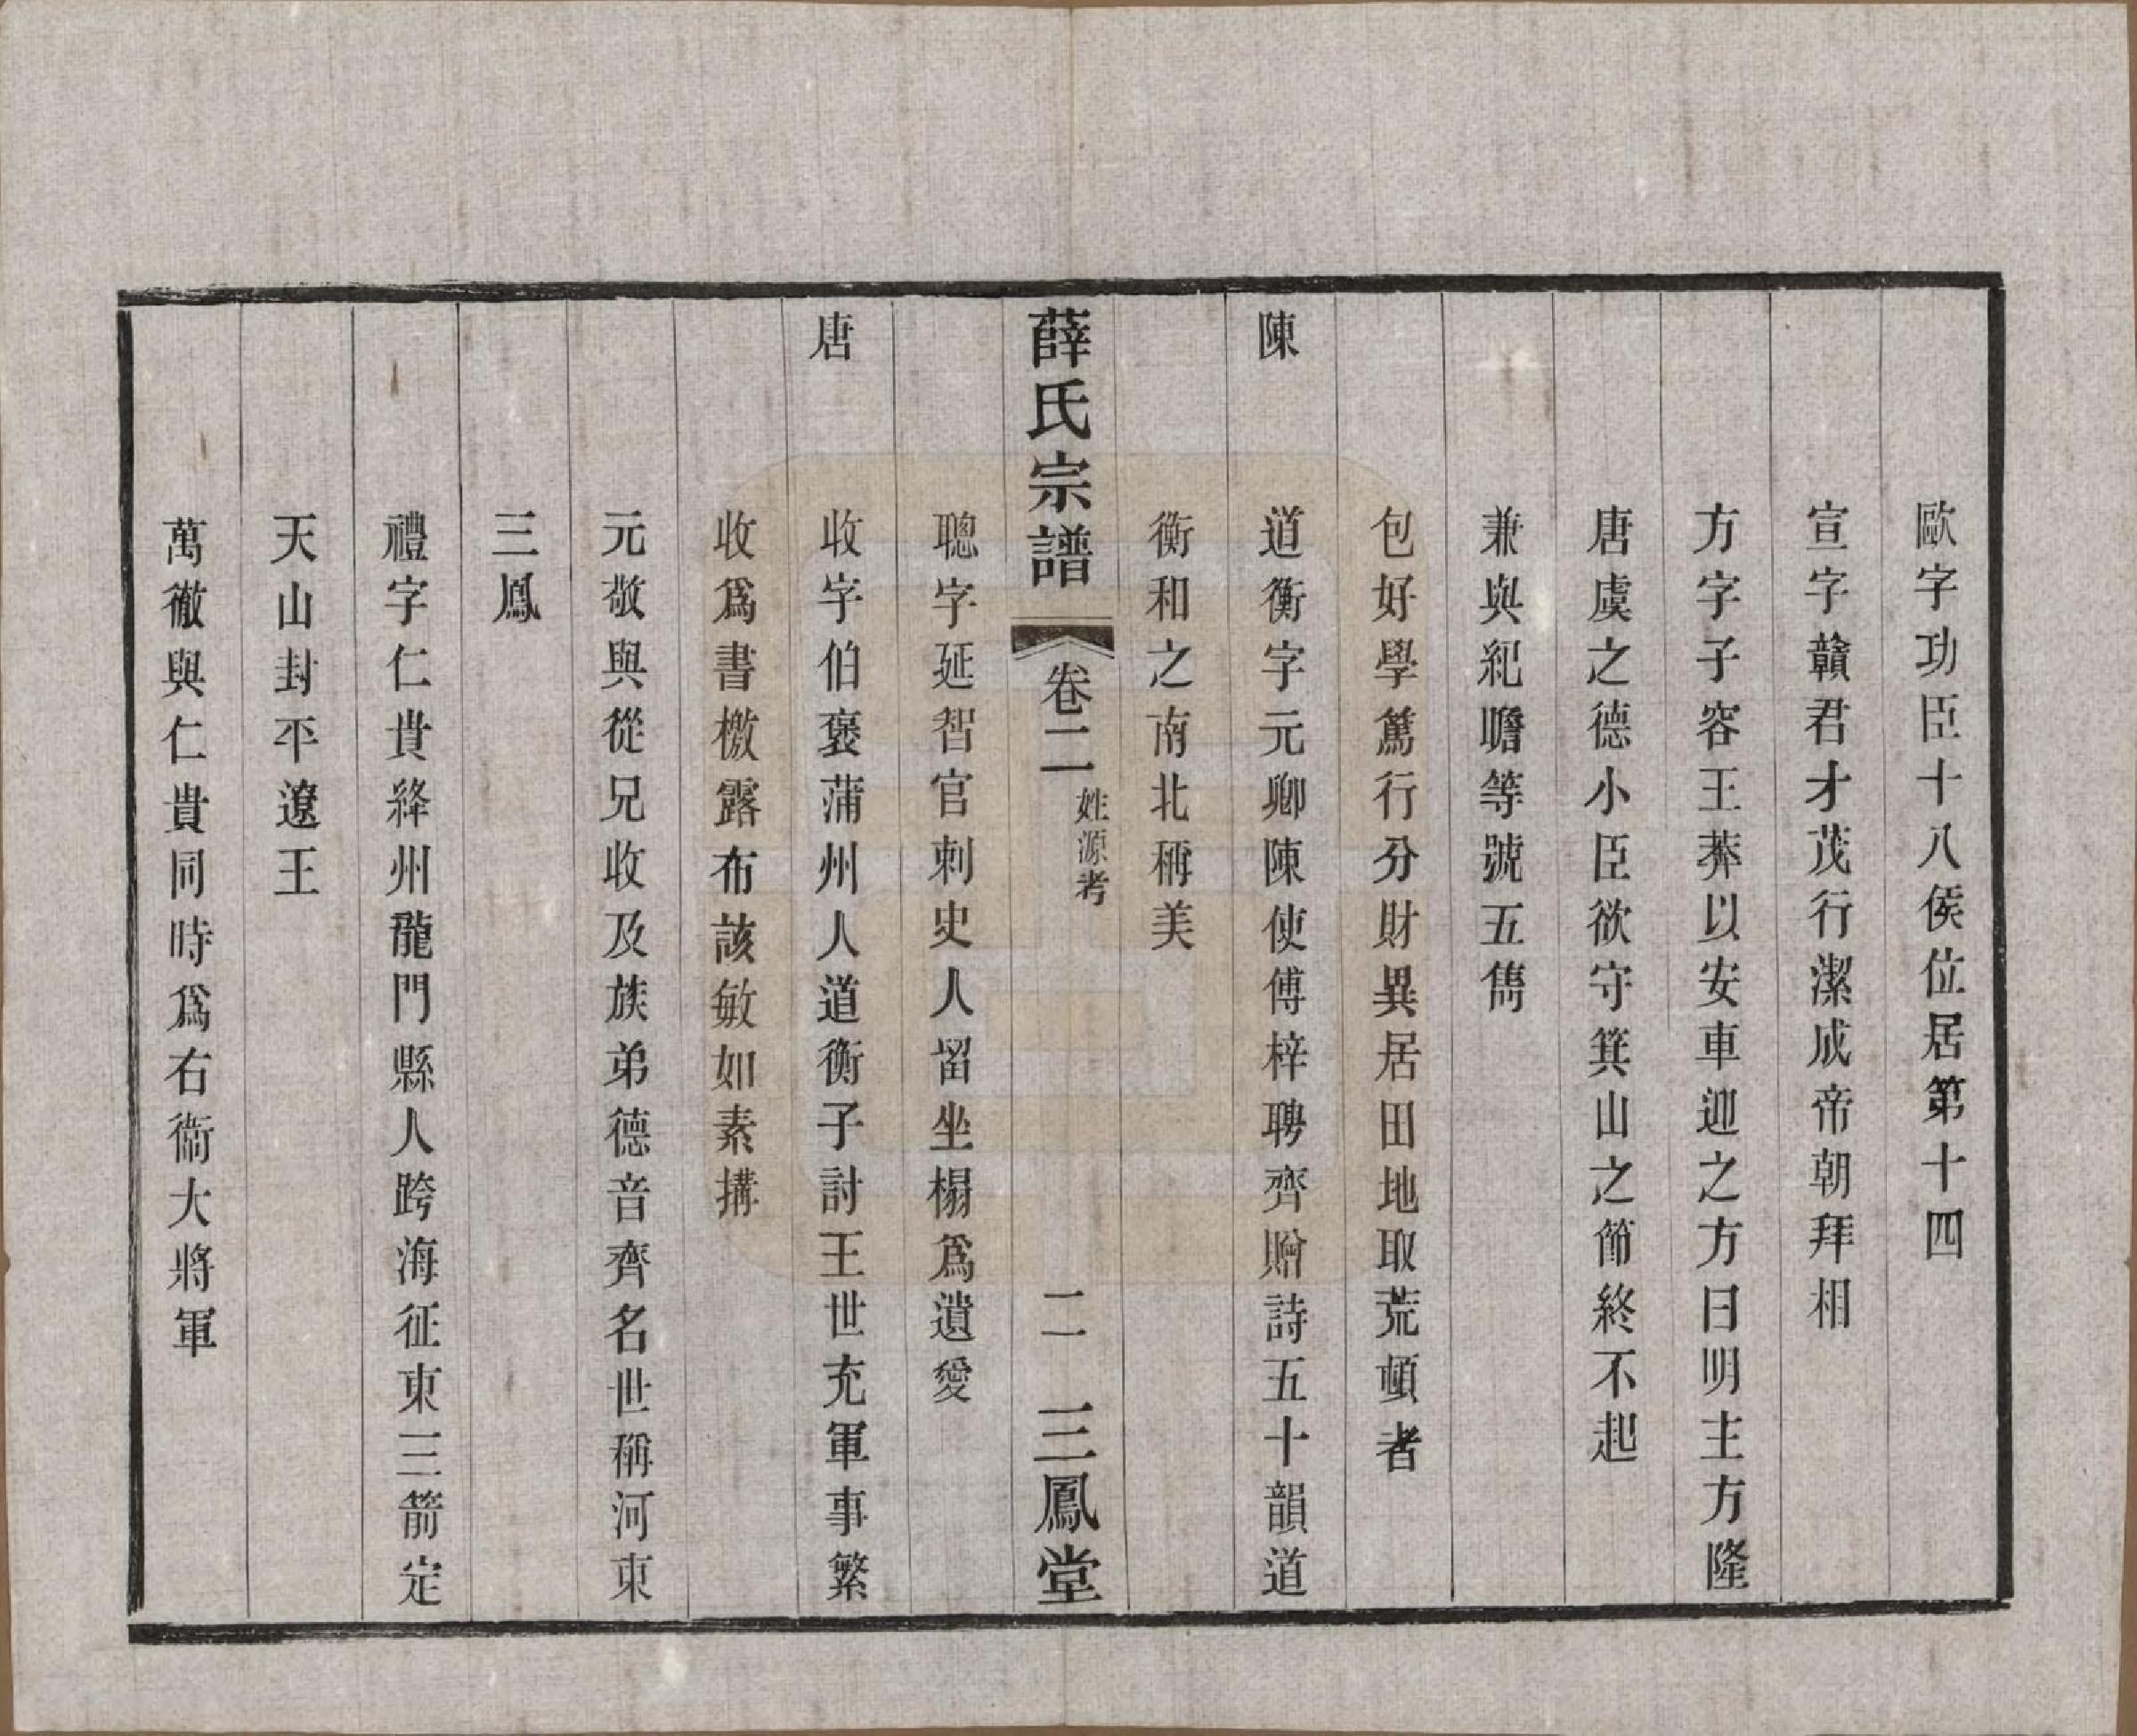 歐字功臣十八侯位居第十四
宣字贛君才茂行潔成帝朝拜相
方字子容王莽以安車迎之方曰明主方隆
唐虞之德小臣欲守箕山之節終不起
兼與紀瞻等號五雋
包好學篤行分財異居田地取荒頓者
陳 道衡字元卿陳使傅縡聘齊贈詩五十韻道
衡和之南北稱美
薛氏宗譜 卷二 姓源考 二 三鳳堂
聰字延智官刺史人留坐榻爲遺愛
唐 收字伯褒蒲州人道衡子討王世充軍事繁
收爲書檄露布該敏如素搆
元敬與從兄收及族弟德音齊名世稱河東
三鳳
禮字仁貴絳州龍門縣人跨海征東三箭定
天山封平遼王
萬徹與仁貴同時爲右衞大將軍